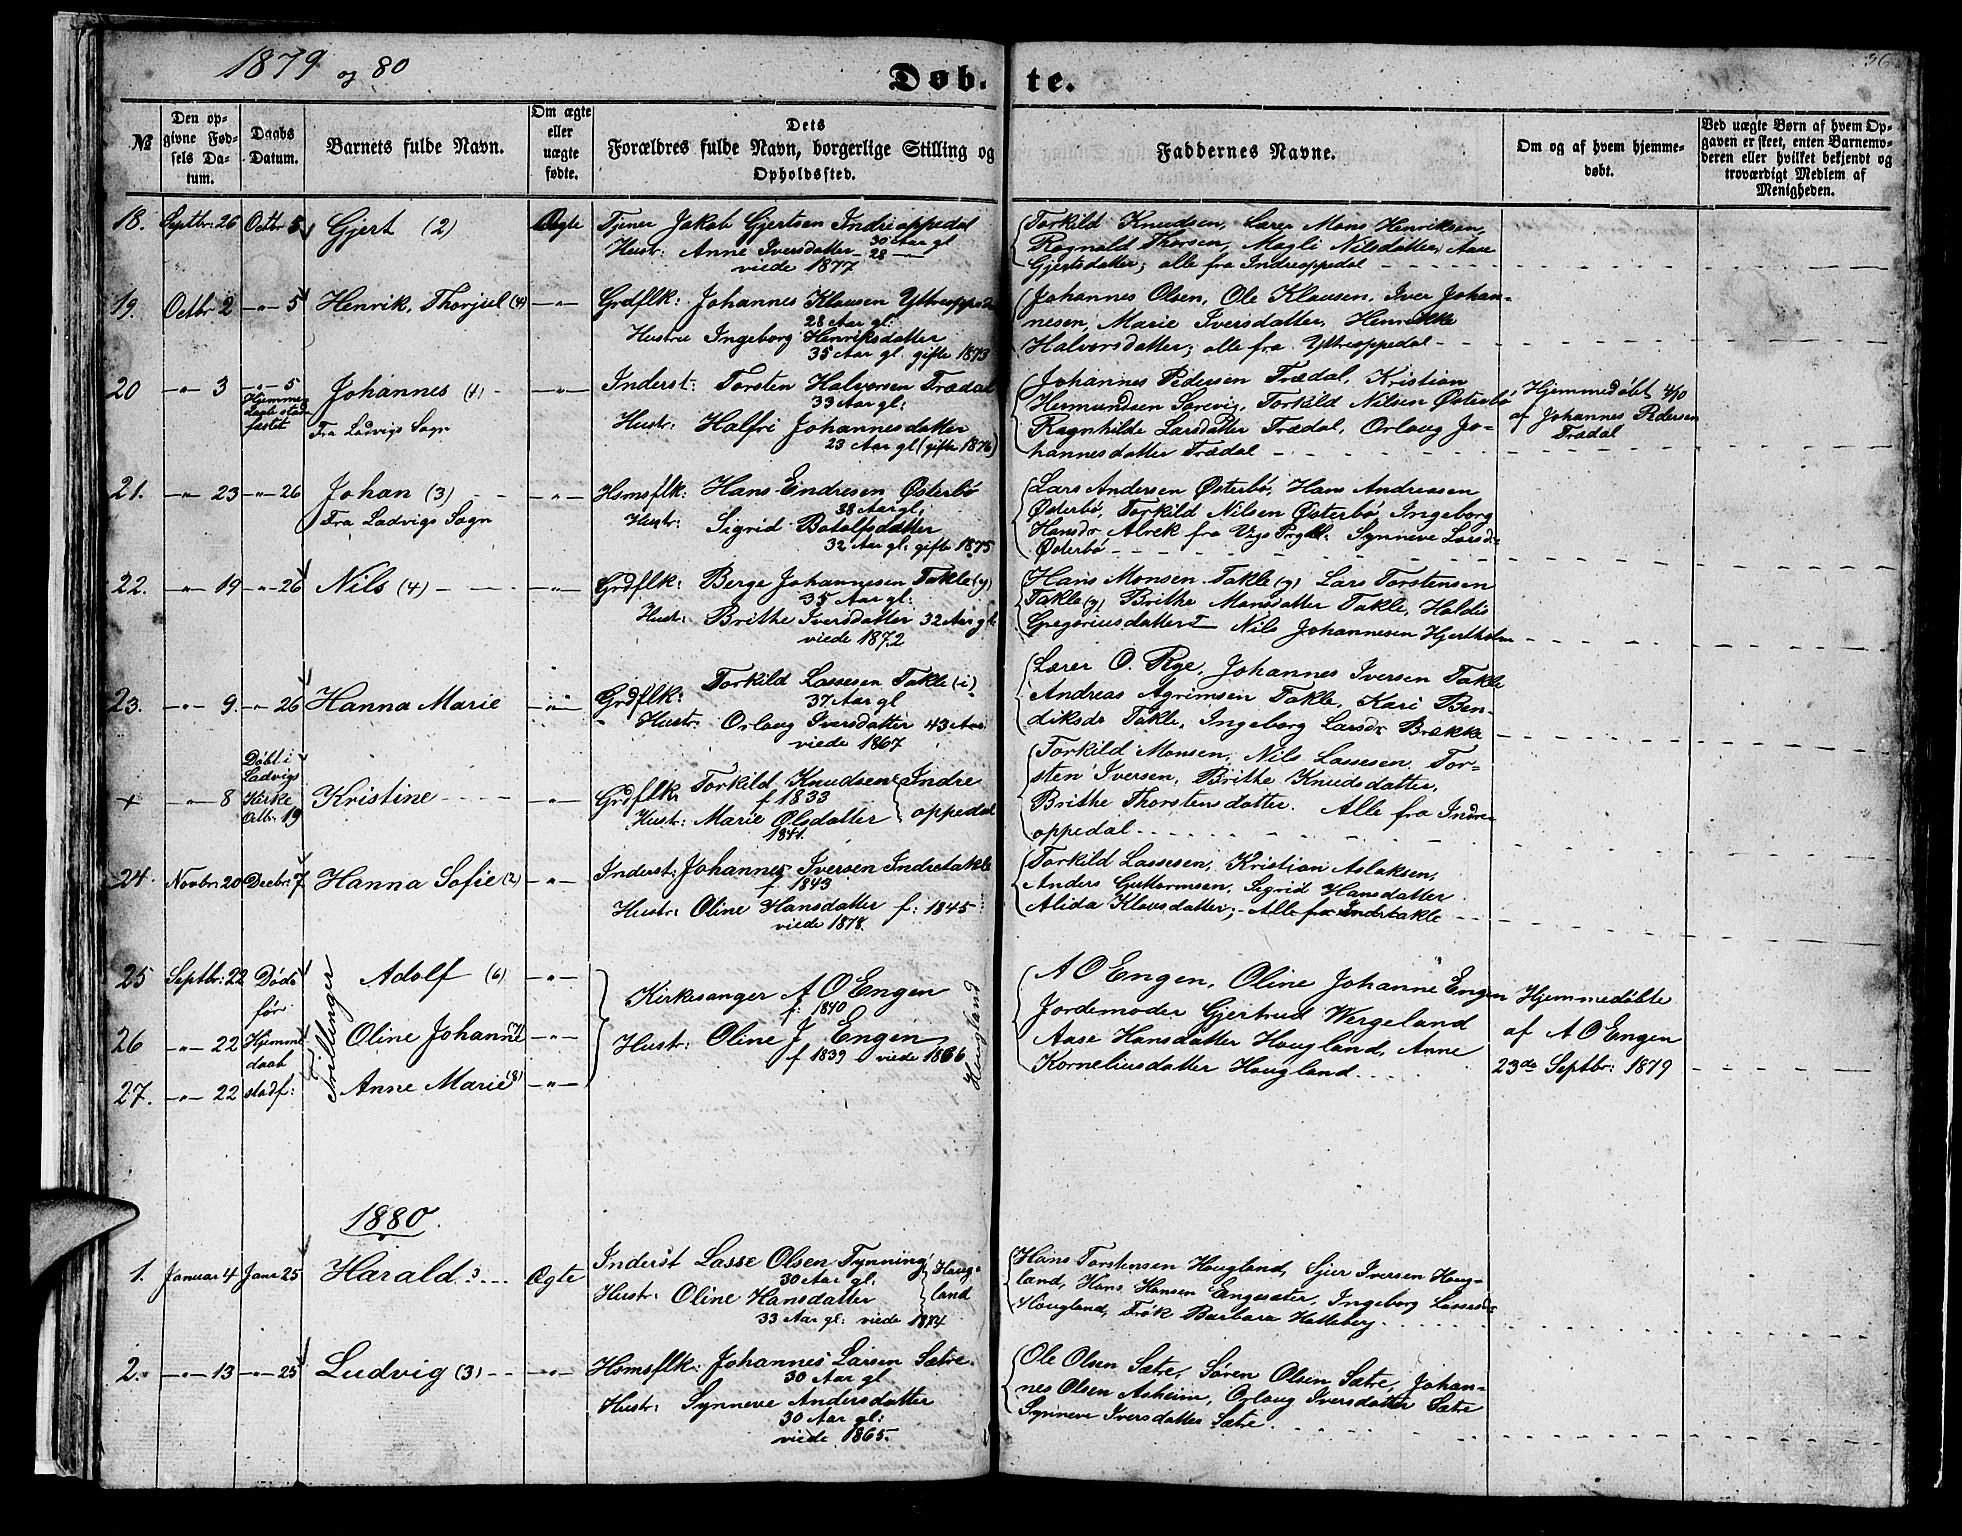 1879 og 80
Døb- te.
36
№
Den opgivne Fødsels Datum.
Daabs Datum.
Barnets fulde Navn.
Om ægte eller uægte fødte.
Dets Forældres fulde Navn, borgerlige Stilling og Opholdssted.
Faddernes Navne.
Om og af hvem hjemmedøbt.
Ved uægte Børn af hvem Opgaven er skeet, enten Barnemoderen eller hvilket bekjendt og troværdigt Medlem af Menigheden.
18. Septbr: 26 Octbr 5 Gjert (2) Ægte
Tjener Jakob Gjertsen Indreoppedal
30 Aar gl
Hustr: Anne Iversdatter - 28 —
viede 1877
Torkild Knudsen, Lærer Mons Henriksen,
Ragnald Thorsen, Magli Nilsdatter, Aase
Gjertsdatter; alle fra Indreoppedal
19. Octbr 2 -"- 5 Henrik, Thorjsel (4) -"-
Grdflk: Johannes Klausen Ytreoppedal
28 Aar gl:
Hustru Ingeborg Henriksdatter
35 Aar gl. gifte 1873
Johannes Olsen, Ole Klausen, Iver Johan-
nesen, Marie Iversdatter, Henrikke
Halvorsdatter; alle fra Ytreoppedal
20 -"- 3 -"- 5 Johannes (1) -"-
Hjemmedaab stadfestet
Fra Ladvigs Sogn
Inderst: Torsten Halvorsen Trædal
33 Aar gl:
Hustr: Halfri Johannesdatter
23 Aar gl (gifte 1876)
Johannes Pedersen Trædal, Kristian
Hermundsen Sørevig, Torkild Nilsen Østerbø
Ragnhilde Larsdatter Trædal, Orloug Jo-
hannesdatter Trædal
Hjemmedøbt 4/10
af Johannes Pedersen
Trædal
21. -"- 23 -"- 26 Johan (3) -"-
Fra Ladvigs Sogn
Hsmsflk: Hans Endresen Østerbø
38 Aar gl:
Hustr: Sigrid Botolfsdatter
32 Aar gl: gifte 1875
Lars Andersen Østerbø, Hans Andreasen
Østerbø, Torkild Nilsen Østerbø, Ingeborg
Hansdr Alrek fra Prgld: Synneve Larsd:
Østerbø
22. -"- 19 -"- 26 Nils (4) -"-
Grdflk: Berge Johannesen Takle (y)
35 Aar gl:
Hustr: Brithe Iversdatter 32 Aar gl
viede 1872
Hans Monsen Takle (y) Lars Torstensen
Takle (y) Brithe Monsdatter Takle, Haldis
Gregoriusdatter Nils Johannesen Hjertholm
23. -"- 9. -"- 26 Hanna Marie -"-
Grdflk: Torkild Lassesen Takle (i)
37 Aar gl
Hustr: Orloug Iversdatter 43 Aar
viede 1867
Lærer O. Rye, Johannes Iversen Takle
Andreas Agrimsen Takle, Kari Ben-
diksdr Takle, Ingeborg Larsdr Brække
+ -"- 8 Døbt i Ladvigs Kirke Octbr: 19 Kristine -"-
Grdflk: Torkild Knudsen Indre
f 1833
Hustr: Marie Olsdatter oppedal
1841.
Torkild Monsen, Nils Lassesen, Tor-
sten Iversen, Brithe Knudsdatter,
Brithe Thorstensdatter. Alle fra Indre
oppedal
24. Novbr: 20 Decbr: 7 Hanna Sofie (2) -"-
Inderst: Johannes Iversen Indretakle
f 1843
Hustr: Oline Hansdatter f: 1845
viede 1878.
Torkild Lassesen, Kristian Aslaksen,
Anders Guttormsen, Sigrid Hansdatter
Alida Klausdatter; Alle fra Indretakle
25 Septbr: 22 Døde Adolf (6) -"-
før
Trillinger
26 -"- 22 Hjemme Oline Johanne (7) -"-
daab
27. -"- 22 stadf: Anne Marie (8) -"-
Kirkesanger A O Engen
f: 1840
Hustr: Oline J Engen
f 1839 viede 1866
Hougland
A O Engen, Oline Johanne Engen
Jordemoder Gjertrud Wergeland
Aase Hansdatter Hougland, Anne
Korneliusdatter Hougland.
Hjemmedøbte
af A O Engen
23de Septbr: 1879
1880.
1. Januar 4 Janr 25 Harald 3 Ægte
Inderst Lasse Olsen Tynning Houg-
30 Aar gl.
Hustr: Oline Hansdatter land
33 Aar gl: viede
Hans Torstensen Hougland, Sjur Iversen Houg-
land, Hans Hansen Engesæter, Ingeborg Lassedr
Hougland, Frøk Barbara Hatleberg.
2. -"- 13 -"- 25 Ludvig (3) -"-
Hsmsflk: Johannes Larsen Sætre.
30 Aar gl
Hustr: Synneve Andersdatter
30 Aar gl:
viede 1865.
Ole Olsen Sætre, Søren Olsen Sætre, Johan-
nes Olsen Asheim, Orloug Iversdatter Sætre
Synneve Iversdatter Sætre.